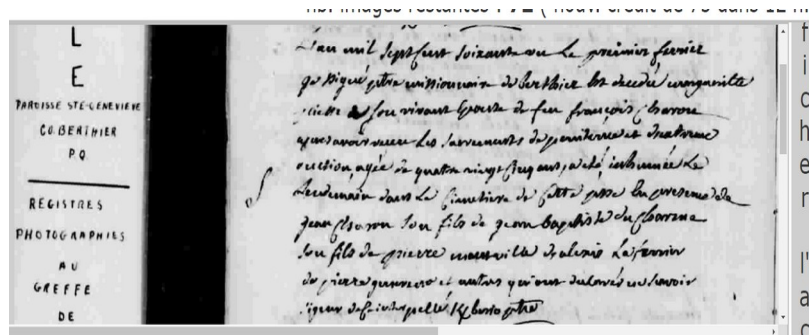 nb. images restantes : 72 ( nouv. crédit de 75 dans 12 h.
L
E
PAROISSE STE-GENEVIEVE
CO. BERTHIER
P.Q.
REGISTRES
PHOTOGRAPHIES
AU
GREFFE
DE
L'an mil sept cent soixante ou Le premier fevrier
ptre missionnaire de berthier est decedé marguerite
de son vivant Epouse de feu françois Charon
apres avoir recu Les sacrements de penitence et d'extreme
onction, agée de quatre vingt cinq ans, a été inhumée Le
Lendemain dans Le Cimetiere de Cette psse En presence de
jean Charon son fils de jean baptiste du Charme
son fils de pierre d'alexis Laferrier
de pierre et autres qui ont declarés ne savoir
signer de ce interpellé ptre
f
i
c
h
e
r
l'
a